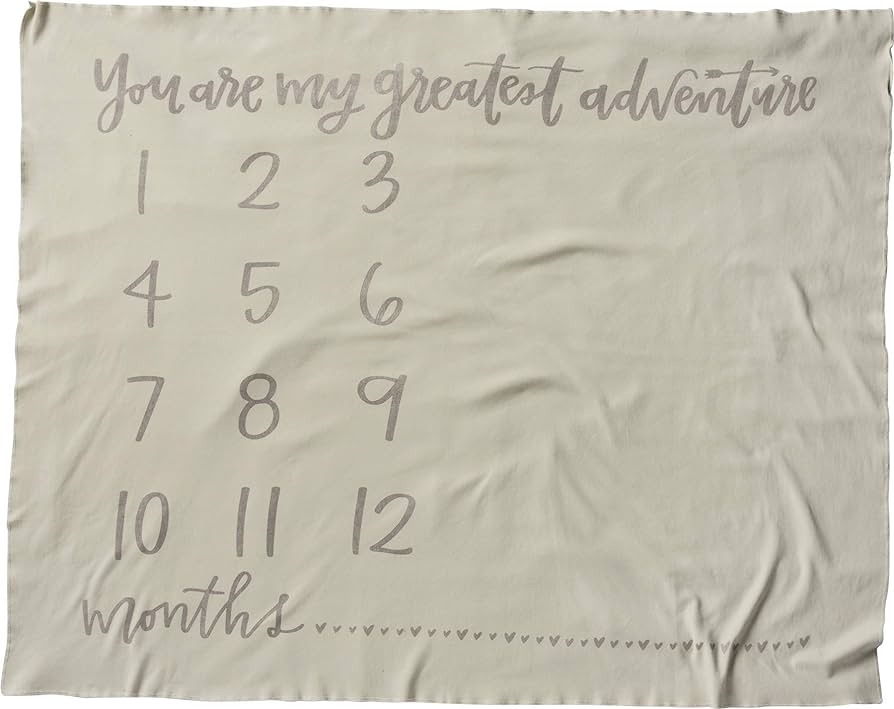 You are my greatest adventure
1 2 3
4 5 6
7 8 9
10 11 12
months